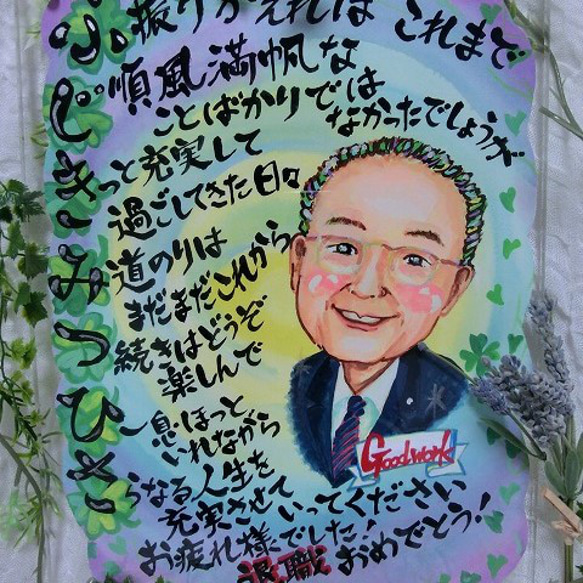 ふじきみつひさ
振りかえれば これまで
順風満帆な
ことばかりでは
なかったでしょうが
っと充実して
過ごしてきた日々
道のりは
まだまだこれから
続きはどうぞ
楽しんで
一息ほっと
いれながら
らなる人生を
充実させて いってください
お疲れ様でした!
退職 おめでとう!
Good work